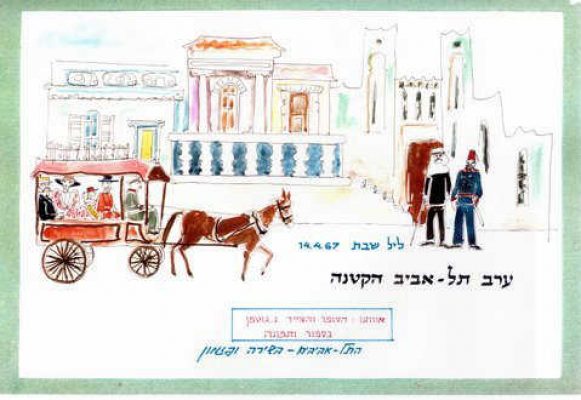 ליל שבת 14.4.67
ערב תל-אביב הקטנה
אורחנו: הסופר והצייר נ. גוטמן
בספור ותמונה
התל-אביבים - בשירה ופזמון